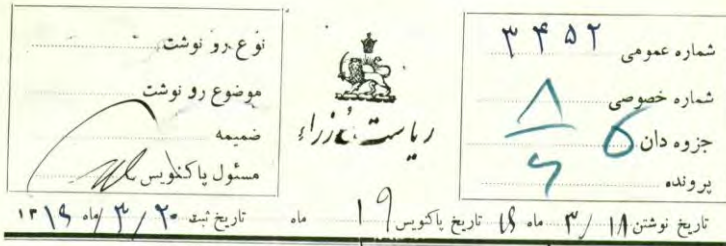 شماره عمومی ۳۴۵۲
شماره خصوصی
جزوه دان ۵
پرونده
ریاست وزراء
نوع رو نوشت
موضوع رو نوشت
ضمیمه
مسئول پاکنویس
تاریخ نوشتن ۱۸/۳ ماه ۱۶ تاریخ پاکنویس ۱۹ ماه تاریخ ثبت ۲۰/۳/ماه ۱۳۱۶